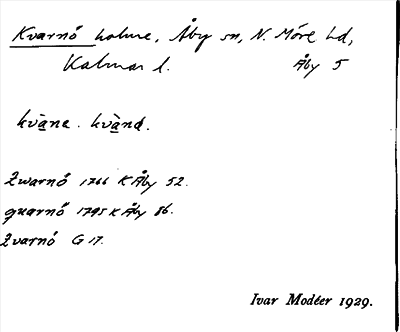 Kvarnö holme, Åby sn, N. Möre hd,
Kalmar l. Åby 5
kvàne . kvànd .
Zwarnö 1766 K Åby 52.
quarnö 1795 K Åby 86.
Zvarnö G 17.
Ivar Modéer 1929.